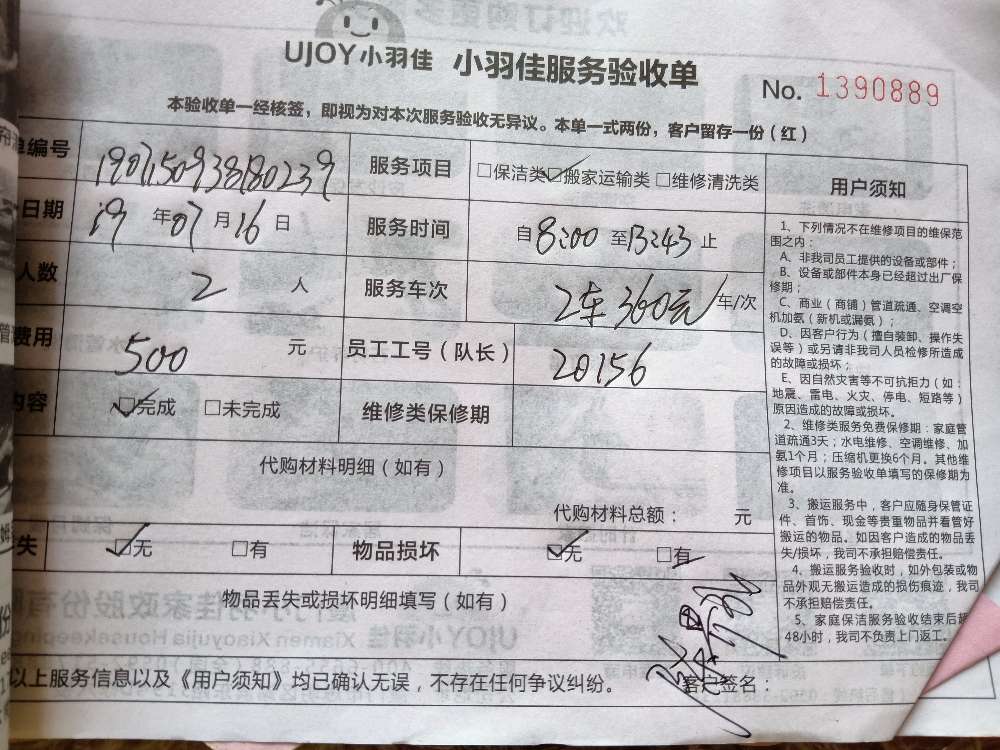 UJOY小羽佳 小羽佳服务验收单 No. 1390889
本验收单一经核签，即视为对本次服务验收无异议。本单一式两份，客户留存一份（红）
单编号 1907150938180239 服务项目 □保洁类 ☑搬家运输类 □维修清洗类
日期 19年07月16日 服务时间 自8:00至13:43止
人数 2人 服务车次 2车360元 车/次
费用 500元 员工工号（队长） 20156
内容 ☑完成 □未完成 维修类保修期
代购材料明细（如有）
代购材料总额： 元
失 ☑无 □有 物品损坏 ☑无 □有
物品丢失或损坏明细填写（如有）
以上服务信息以及《用户须知》均已确认无误，不存在任何争议纠纷。 客户签名：
用户须知
1、下列情况不在维修项目的维保范
围之内：
A、非我司员工提供的设备或部件；
B、设备或部件本身已经超过出厂保
修期；
C、商业（商铺）管道疏通、空调空
机加氨（新机或漏氨）；
D、因客户行为（擅自装卸、操作失
误等）或另请非我司人员检修所造成
的故障或损坏；
E、因自然灾害等不可抗拒力（如：
地震、雷电、火灾、停电、短路等）
原因造成的故障或损坏。
2、维修类服务免费保修期：家庭管
道疏通3天；水电维修、空调维修、加
氨1个月；压缩机更换6个月。其他维
修项目以服务验收单填写的保修期为
准。
3、搬运服务中，客户应随身保管证
件、首饰、现金等贵重物品并看管好
搬运的物品。如因客户造成的物品丢
失/损坏，我司不承担赔偿责任。
4、搬运服务验收时，如外包装或物
品外观无搬运造成的损伤痕迹，我司
不承担赔偿责任。
5、家庭保洁服务验收结束后超
48小时，我司不负责上门返工。